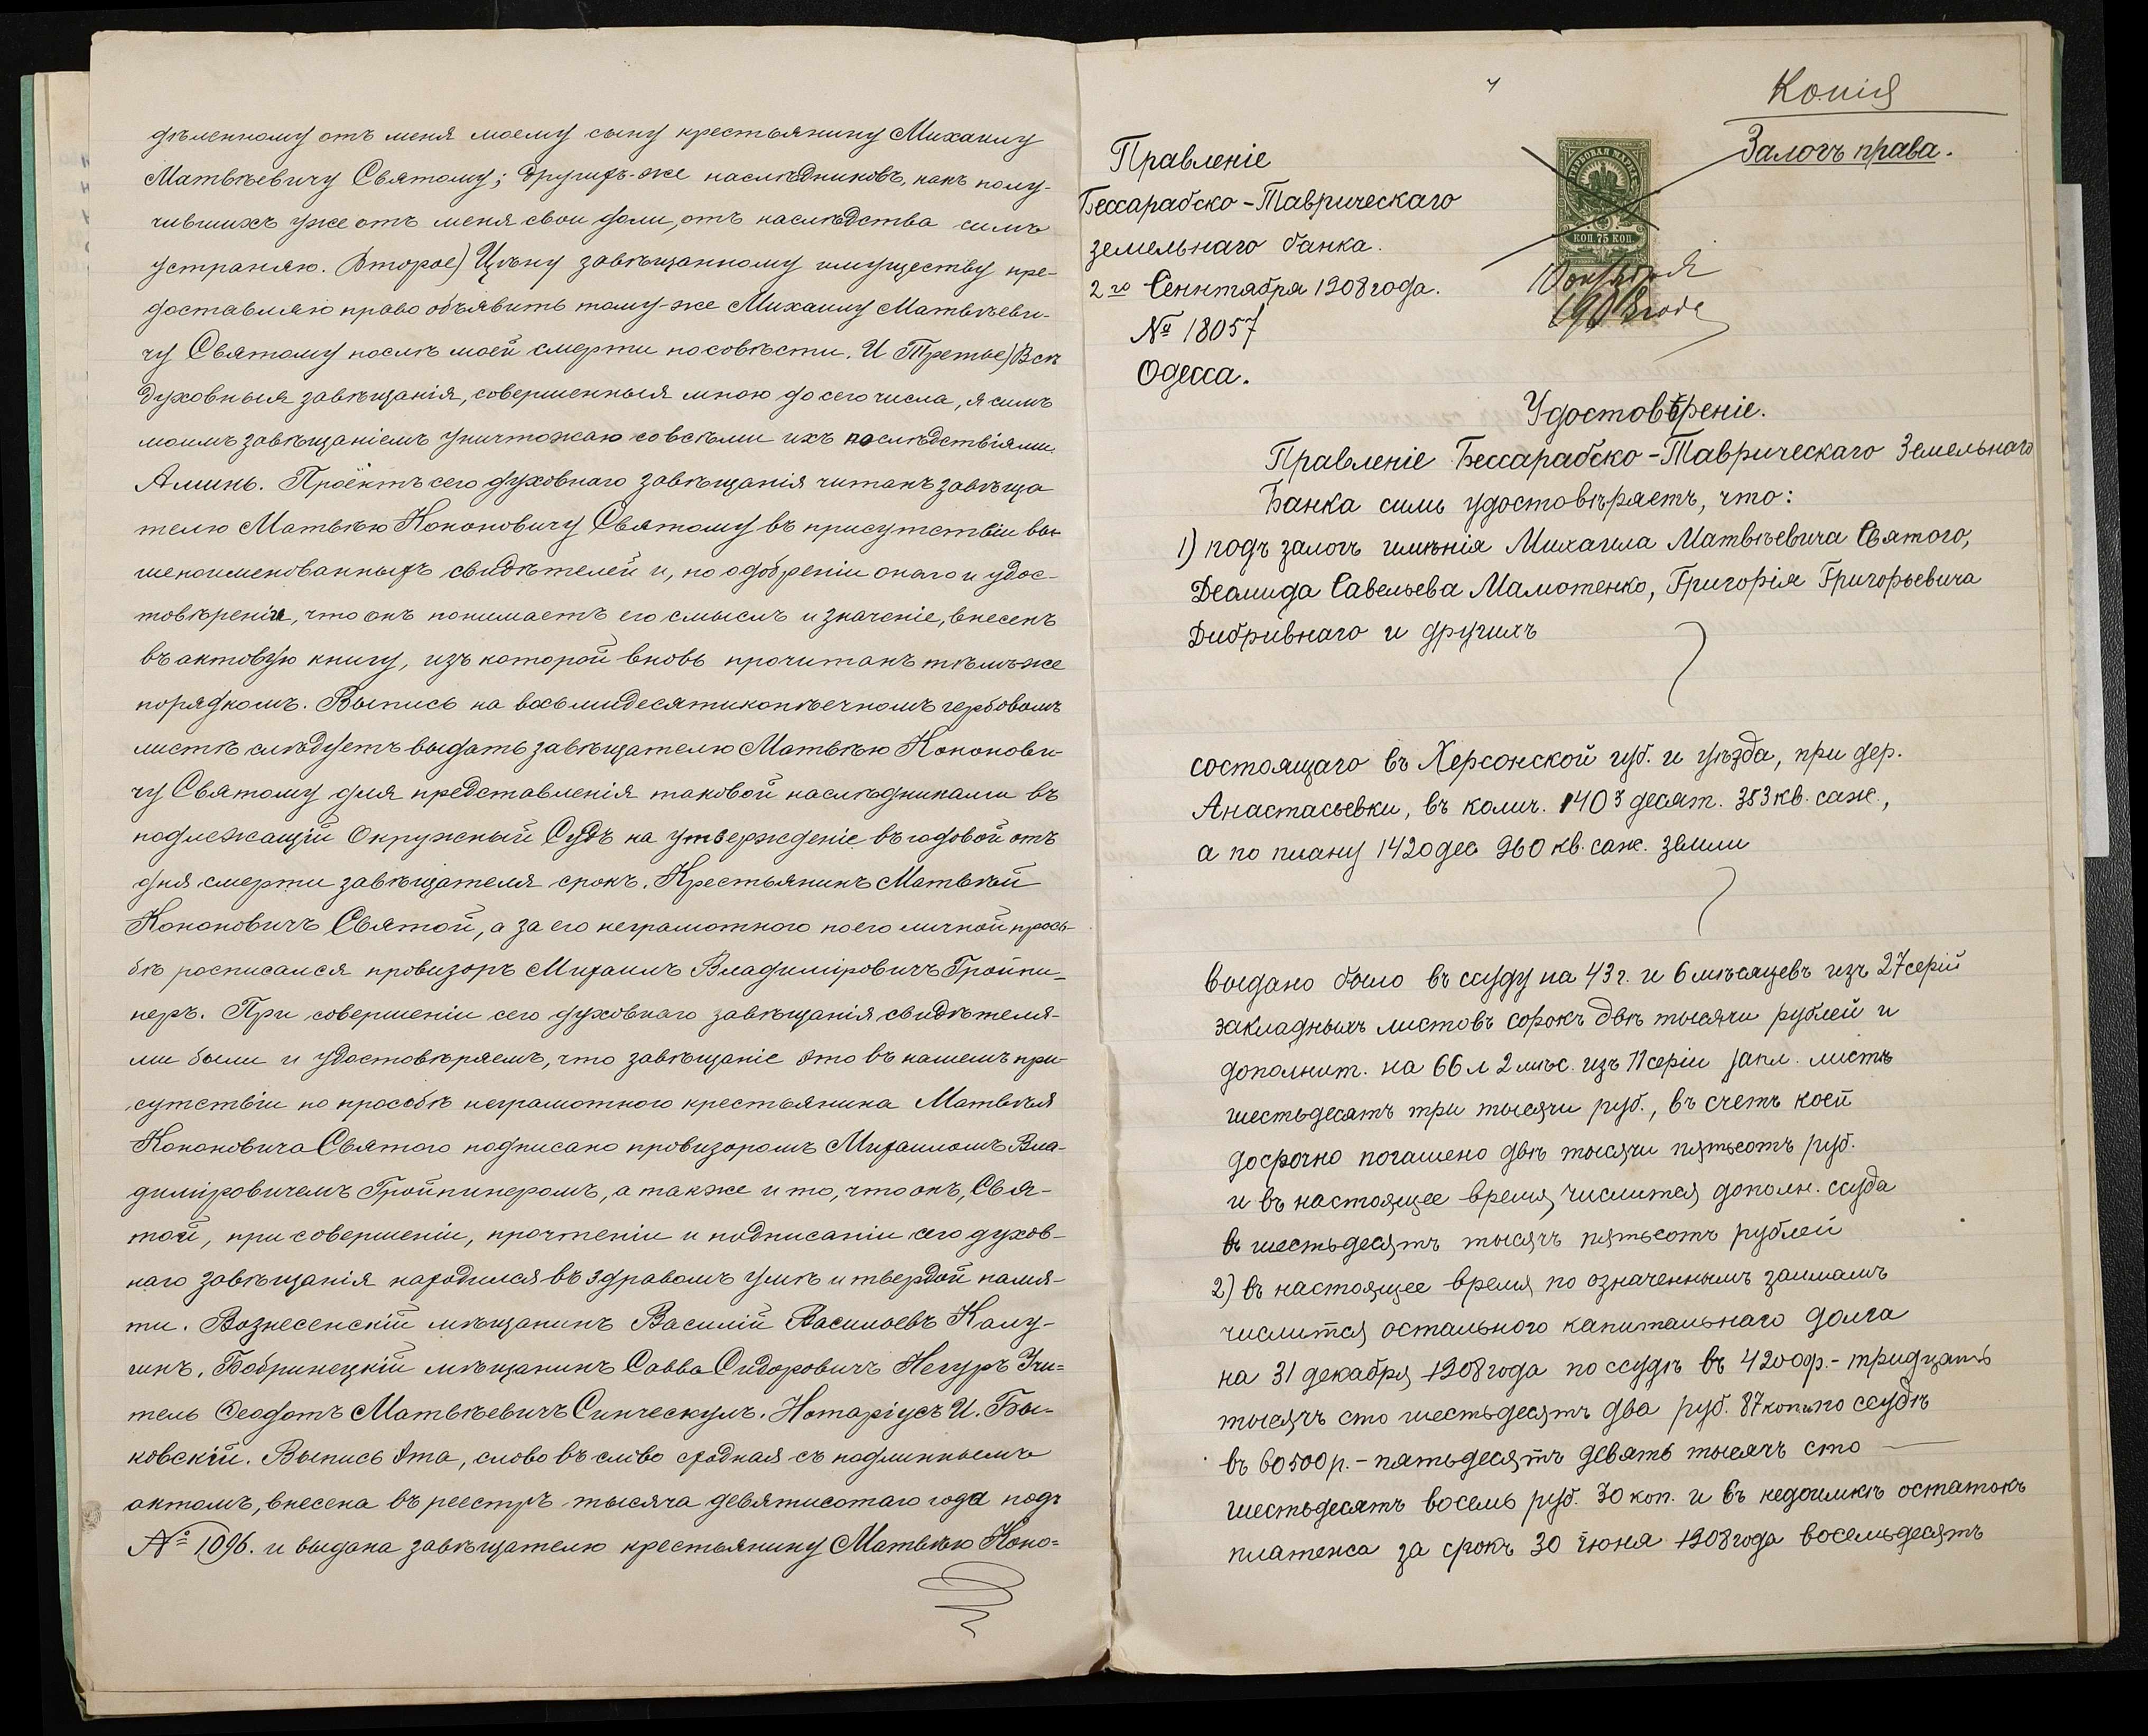 дѣленному отъ меня моему сыну крестьянину Михаилу
Матвѣевичу Святому; другихъ-же наслѣдниковъ, какъ полу-
чившихъ уже отъ меня свои доли, отъ наслѣдства симъ
устраняю. Второе) Цѣну завѣщанному имуществу пре-
доставляю право объявить тому-же Михаилу Матвѣеви-
чу Святому послѣ моей смерти по совѣсти. И Третье) Всѣ
духовныя завѣщанія, совершенныя мною до сего числа, я симъ
моимъ завѣщаніемъ уничтожаю со всѣми ихъ послѣдствіями.
Аминь. Проектъ сего духовнаго завѣщанія читанъ завѣща
телю Матвѣю Кононовичу Святому въ присутствіи вы-
шепоименованныхъ свидѣтелей и, по одобреніи онаго и удос-
товѣреніи, что онъ понимаетъ его смыслъ и значеніе, внесенъ
въ актовую книгу, изъ которой вновь прочитанъ тѣмъ-же
порядкомъ. Выпись на восьмидесятикопѣечномъ гербовомъ
листѣ слѣдуетъ выдать завѣщателю Матвѣю Кононови-
чу Святому для представленія таковой наслѣдниками въ
подлежащій Окружный Судъ на утвержденіе въ годовой отъ
дня смерти завѣщателя срокъ. Крестьянинъ Матвѣй
Кононовичъ Святой, а за его неграмотного по его личной прось-
бѣ росписался провизоръ Михаилъ Владиміровичъ Гройпи-
неръ. При совершеніи сего духовнаго завѣщанія свидѣтеля-
ми были и удостовѣряемъ, что завѣщаніе это въ нашемъ при-
сутствіи по просьбѣ неграмотного крестьянина Матвѣя
Кононовича Святого подписано провизоромъ Михаиломъ Вла-
диміровичемъ Гройпинеромъ, а также и то, что онъ, Свя-
той, при совершеніи, прочтеніи и подписаніи сего духов-
наго завѣщанія находился въ здравомъ умѣ и твердой памя-
ти. Вознесенскій мѣщанинъ Василій Васильевъ Калу-
гинъ. Бобринецкій мѣщанинъ Савва Сидоровичъ Негуръ Учи=
тель Ѳеодотъ Матвѣевичъ Синческулъ. Нотаріусъ И. Бы-
ковскій. Выпись эта, слово въ слово сходная съ подлиннымъ
актомъ, внесена въ реестръ тысяча девятисотаго года подъ
№ 1096. и выдана завѣщателю крестьянину Матвѣю Коно=
Копія
Залогъ права.
Правленіе
Бессарабско-Таврическаго
земельнаго банка.
2го Сеннтября 1908 года.
№ 18057
Одесса.
ГЕРБОВАЯ МАРКА
КОП. 75 КОП.
10 октября
1908 года
Удостовѣреніе.
Правленіе Бессарабско-Таврическаго Земельнаго
Банка симъ удостовѣряетъ, что:
1) подъ залогъ имѣнія Михаила Матвѣевича Святого,
Деомида Савельева Мамотенко, Григорія Григорьевича
Дибривнаго и другихъ
состоящаго въ Херсонской губ. и уѣзда, при дер.
Анастасьевки, въ колич. 1403 десят. 353 кв. саж.,
а по плану 1420 дес 960 кв. саж. земли
выдано было въ ссуду на 43 г. и 6 мѣсяцевъ изъ 27 серій
закладныхъ листовъ сорокъ двѣ тысячи рублей и
дополнит. на 66 л 2 мѣс. изъ 11 серіи закл. листъ
шестьдесятъ три тысячи руб., въ счетъ коей
досрочно погашено двѣ тысячи пятьсотъ руб.
и въ настоящее время числится дополн. ссуда
въ шестьдесятъ тысячъ пятьсотъ рублей
2) въ настоящее время по означеннымъ займамъ
числится остального капитальнаго долга
на 31 декабря 1908 года по ссудѣ въ 42000р.- тридцать
тысячъ сто шестьдесятъ два руб. 87 коп. по ссудѣ
въ 60500р.- пятьдесятъ девять тысячъ сто
шестьдесятъ восемь руб. 30 коп. и въ недоимкѣ остатокъ
платежа за срокъ 30 іюня 1908 года восемьдесятъ